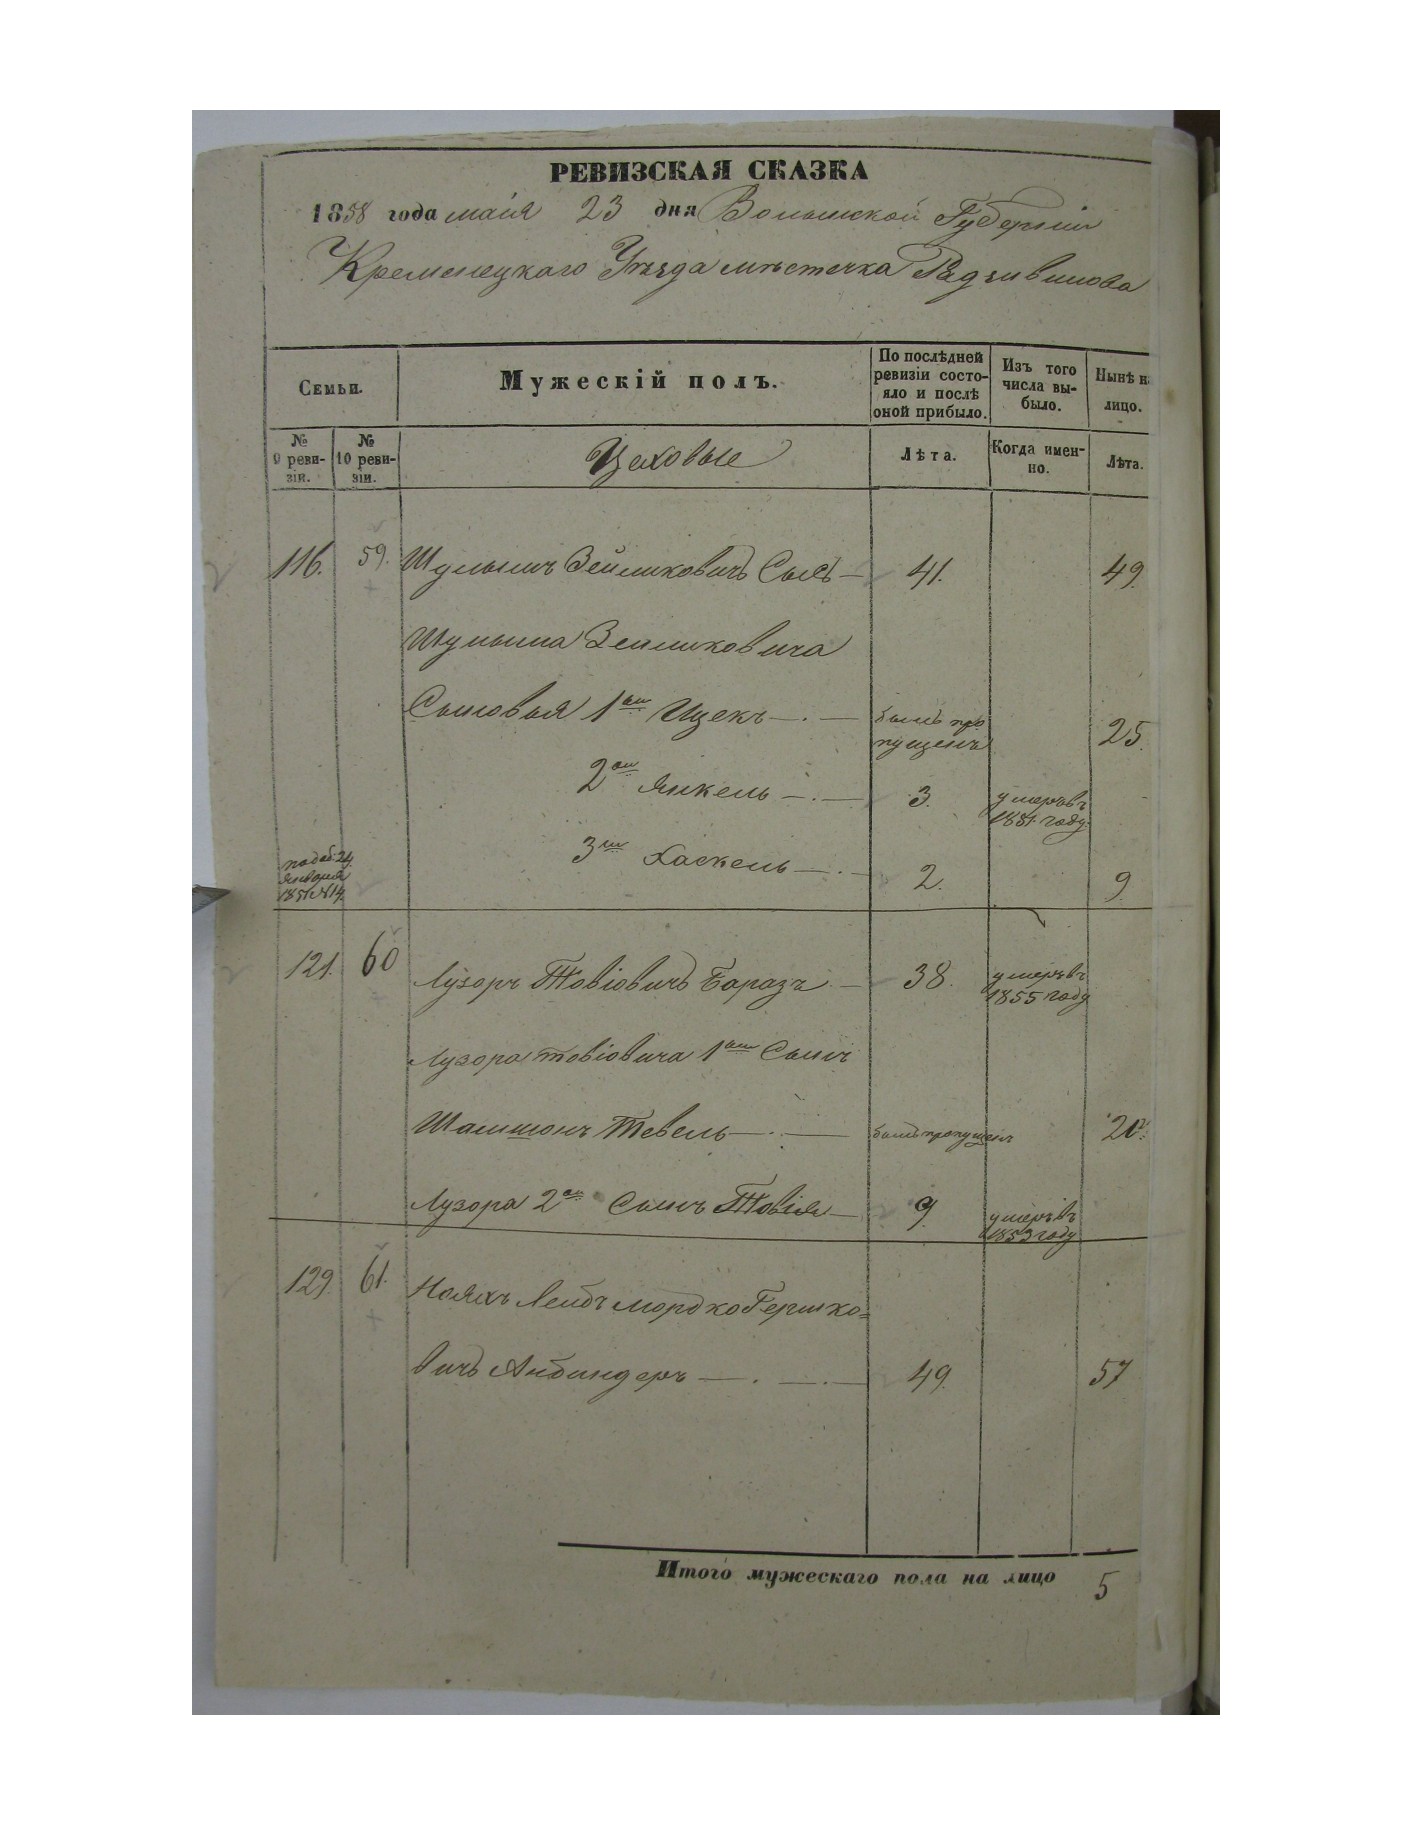 РЕВИЗСКАЯ СКАЗКА
1858 года маія 23 дня Волынской Губерніи
Кременецкаго Уѣзда мѣстечка Радзивилова
Семьи.
Мужескій полъ.
По послѣдней ревизіи состояло и послѣ оной прибыло.
Изъ того числа выбыло.
Нынѣ на лицо.
№ 9 ревизіи.
№ 10 ревизіи.
Цеховые
Лѣта.
Когда именно.
Лѣта.
116. 59. Шулимъ Зейликовичъ 41. 49.
Шулима Зейликовича
Сыновья 1ый Ицекъ былъ пропущенъ 25.
2ой Янкель 3. умеръ въ 1851 году
3ий Хаскель 2. 9.
1851 №14.
121. 60 Лузоръ Товіовичъ Баразъ 38. умеръ въ 1855 году
Лузора Товіовича 1ый Сынъ
Шамшонъ Тевель былъ пропущенъ 20
Лузора 2ой Сынъ Товія 9. умеръ въ 1853 году
129. 61. Нояхъ Лейбъ Мордко Гершко=
вичъ Айбиндеръ 49. 57
Итого мужескаго пола на лицо 5